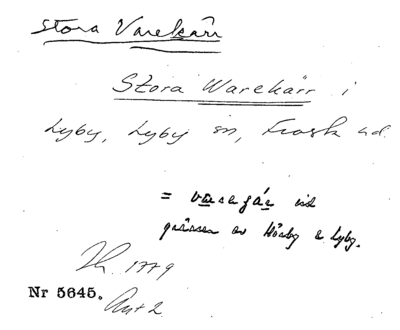 Stora Varekärr
Stora Warekärr i
Lyby, Lyby sn, Frosta hd.
= vid
gränsen av Hörby o Lyby.
1779
Nr 5645.